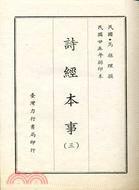 民國•馬振理撰
民國廿五年初印本
詩經本事
(三)
臺灣力行書局印行